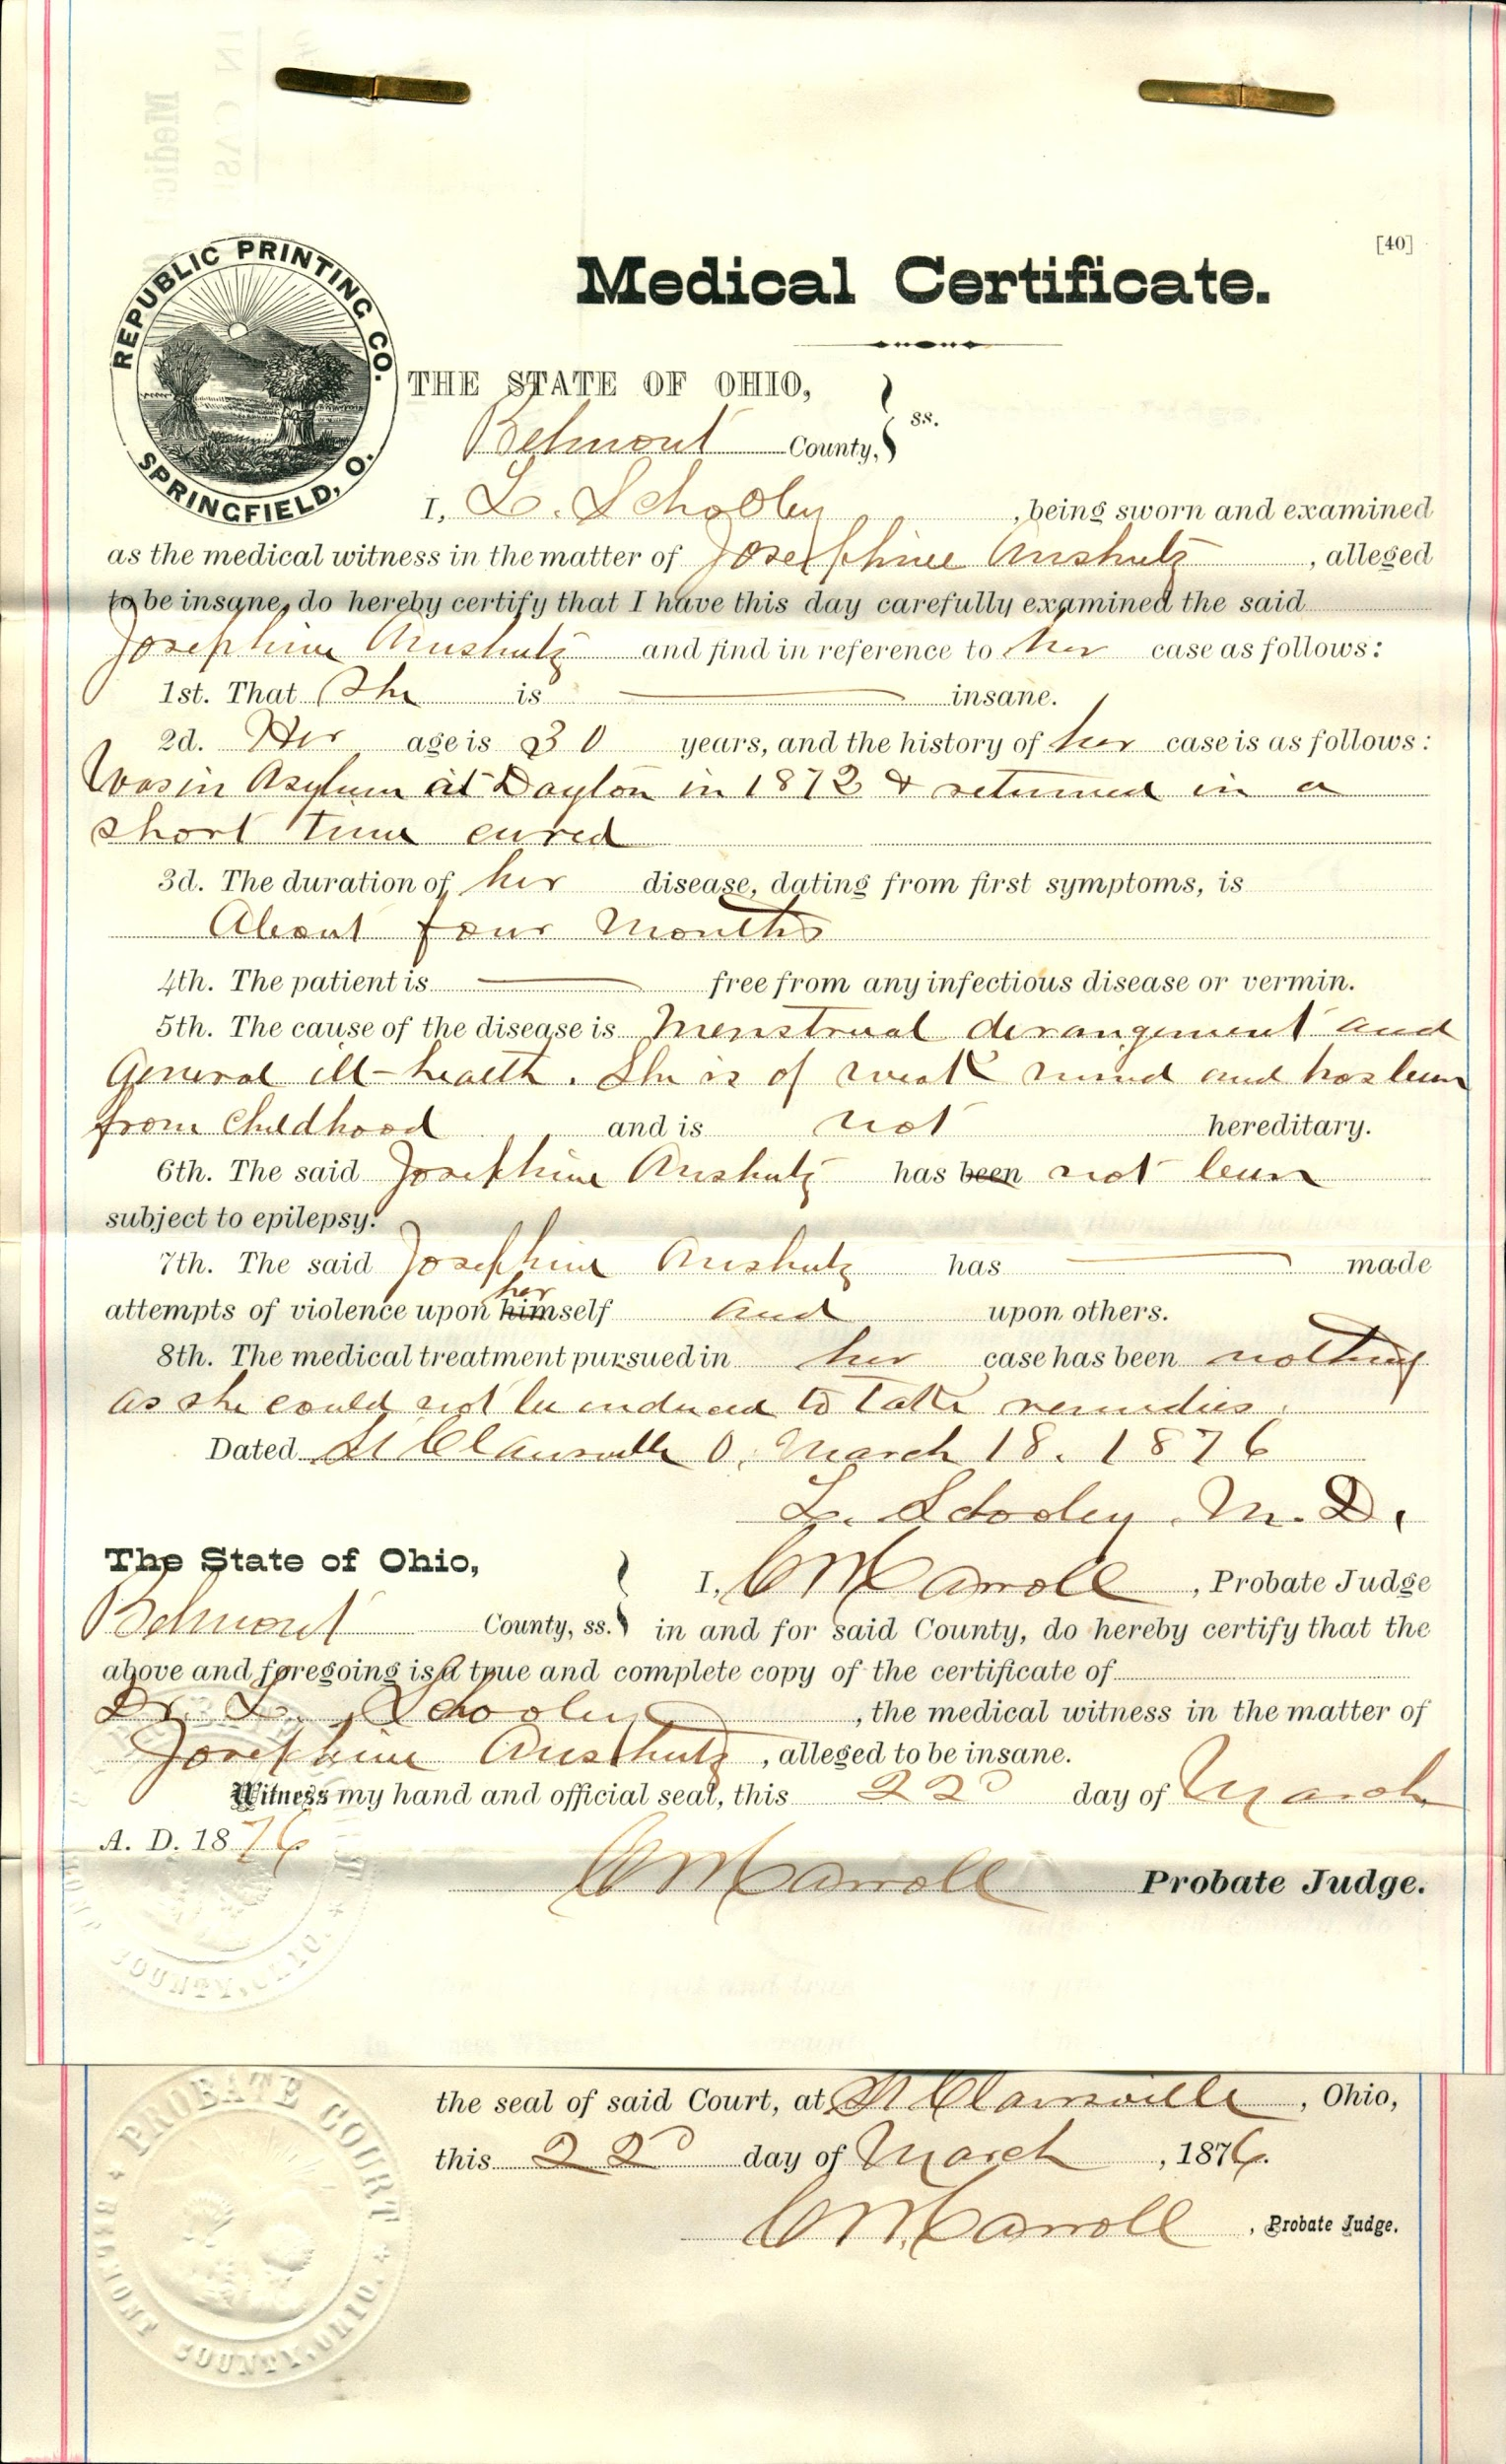 [40]
Medical Certificate.
REPUBLIC PRINTING CO.
SPRINGFIELD, O.
THE STATE OF OHIO,
Belmont County, } ss.
I, L. Schooley, being sworn and examined
as the medical witness in the matter of Josephine Anshutz, alleged
to be insane, do hereby certify that I have this day carefully examined the said
Josephine Anshutz and find in reference to her case as follows:
1st. That She is insane.
2d. Her age is 30 years, and the history of her case is as follows:
Was in Asylum at Dayton in 1872 & returned in a
short time cured
3d. The duration of her disease, dating from first symptoms, is
About four Months
4th. The patient is free from any infectious disease or vermin.
5th. The cause of the disease is Menstrual derangement and
General ill-health. She is of weak mind and has been
from Childhood and is not hereditary.
6th. The said Josephine Anshutz has been not been
subject to epilepsy.
7th. The said Josephine Anshutz has made
attempts of violence upon himself her and upon others.
8th. The medical treatment pursued in her case has been nothing
as she could not be induced to take remedies.
Dated St Clairsville O. March 18. 1876
L. Schooley M. D.
The State of Ohio, } I, Carroll, Probate Judge
Belmont County, ss. in and for said County, do hereby certify that the
above and foregoing is a true and complete copy of the certificate of
Dr. L. Schooley, the medical witness in the matter of
Josephine Anschutz, alleged to be insane.
Witness my hand and official seal, this 22d day of March
A. D. 1876
Carroll Probate Judge.
COUNTY, OHIO
the seal of said Court, at St Clairsville, Ohio,
this 22d day of March, 1876.
Carroll, Probate Judge.
PROBATE COURT
BELMONT COUNTY, OHIO